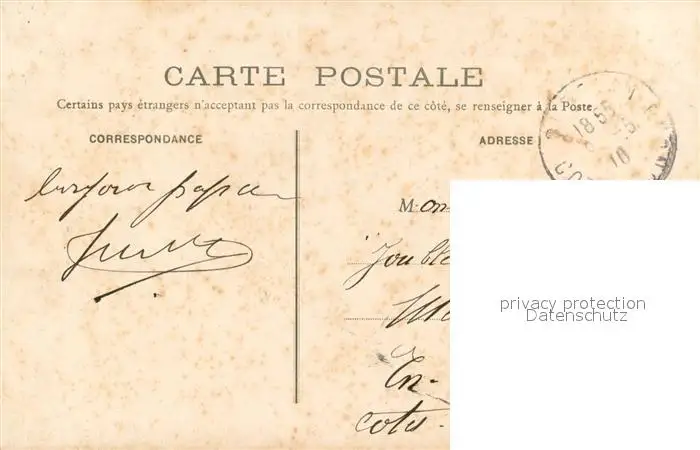 CARTE POSTALE
Certains pays étrangers n'acceptant pas la correspondance de ce côté, se renseigner à la Poste
CORRESPONDANCE
ADRESSE
18 55
10
bonjour papa
M. on
En-
cotes-
privacy protection
Datenschutz